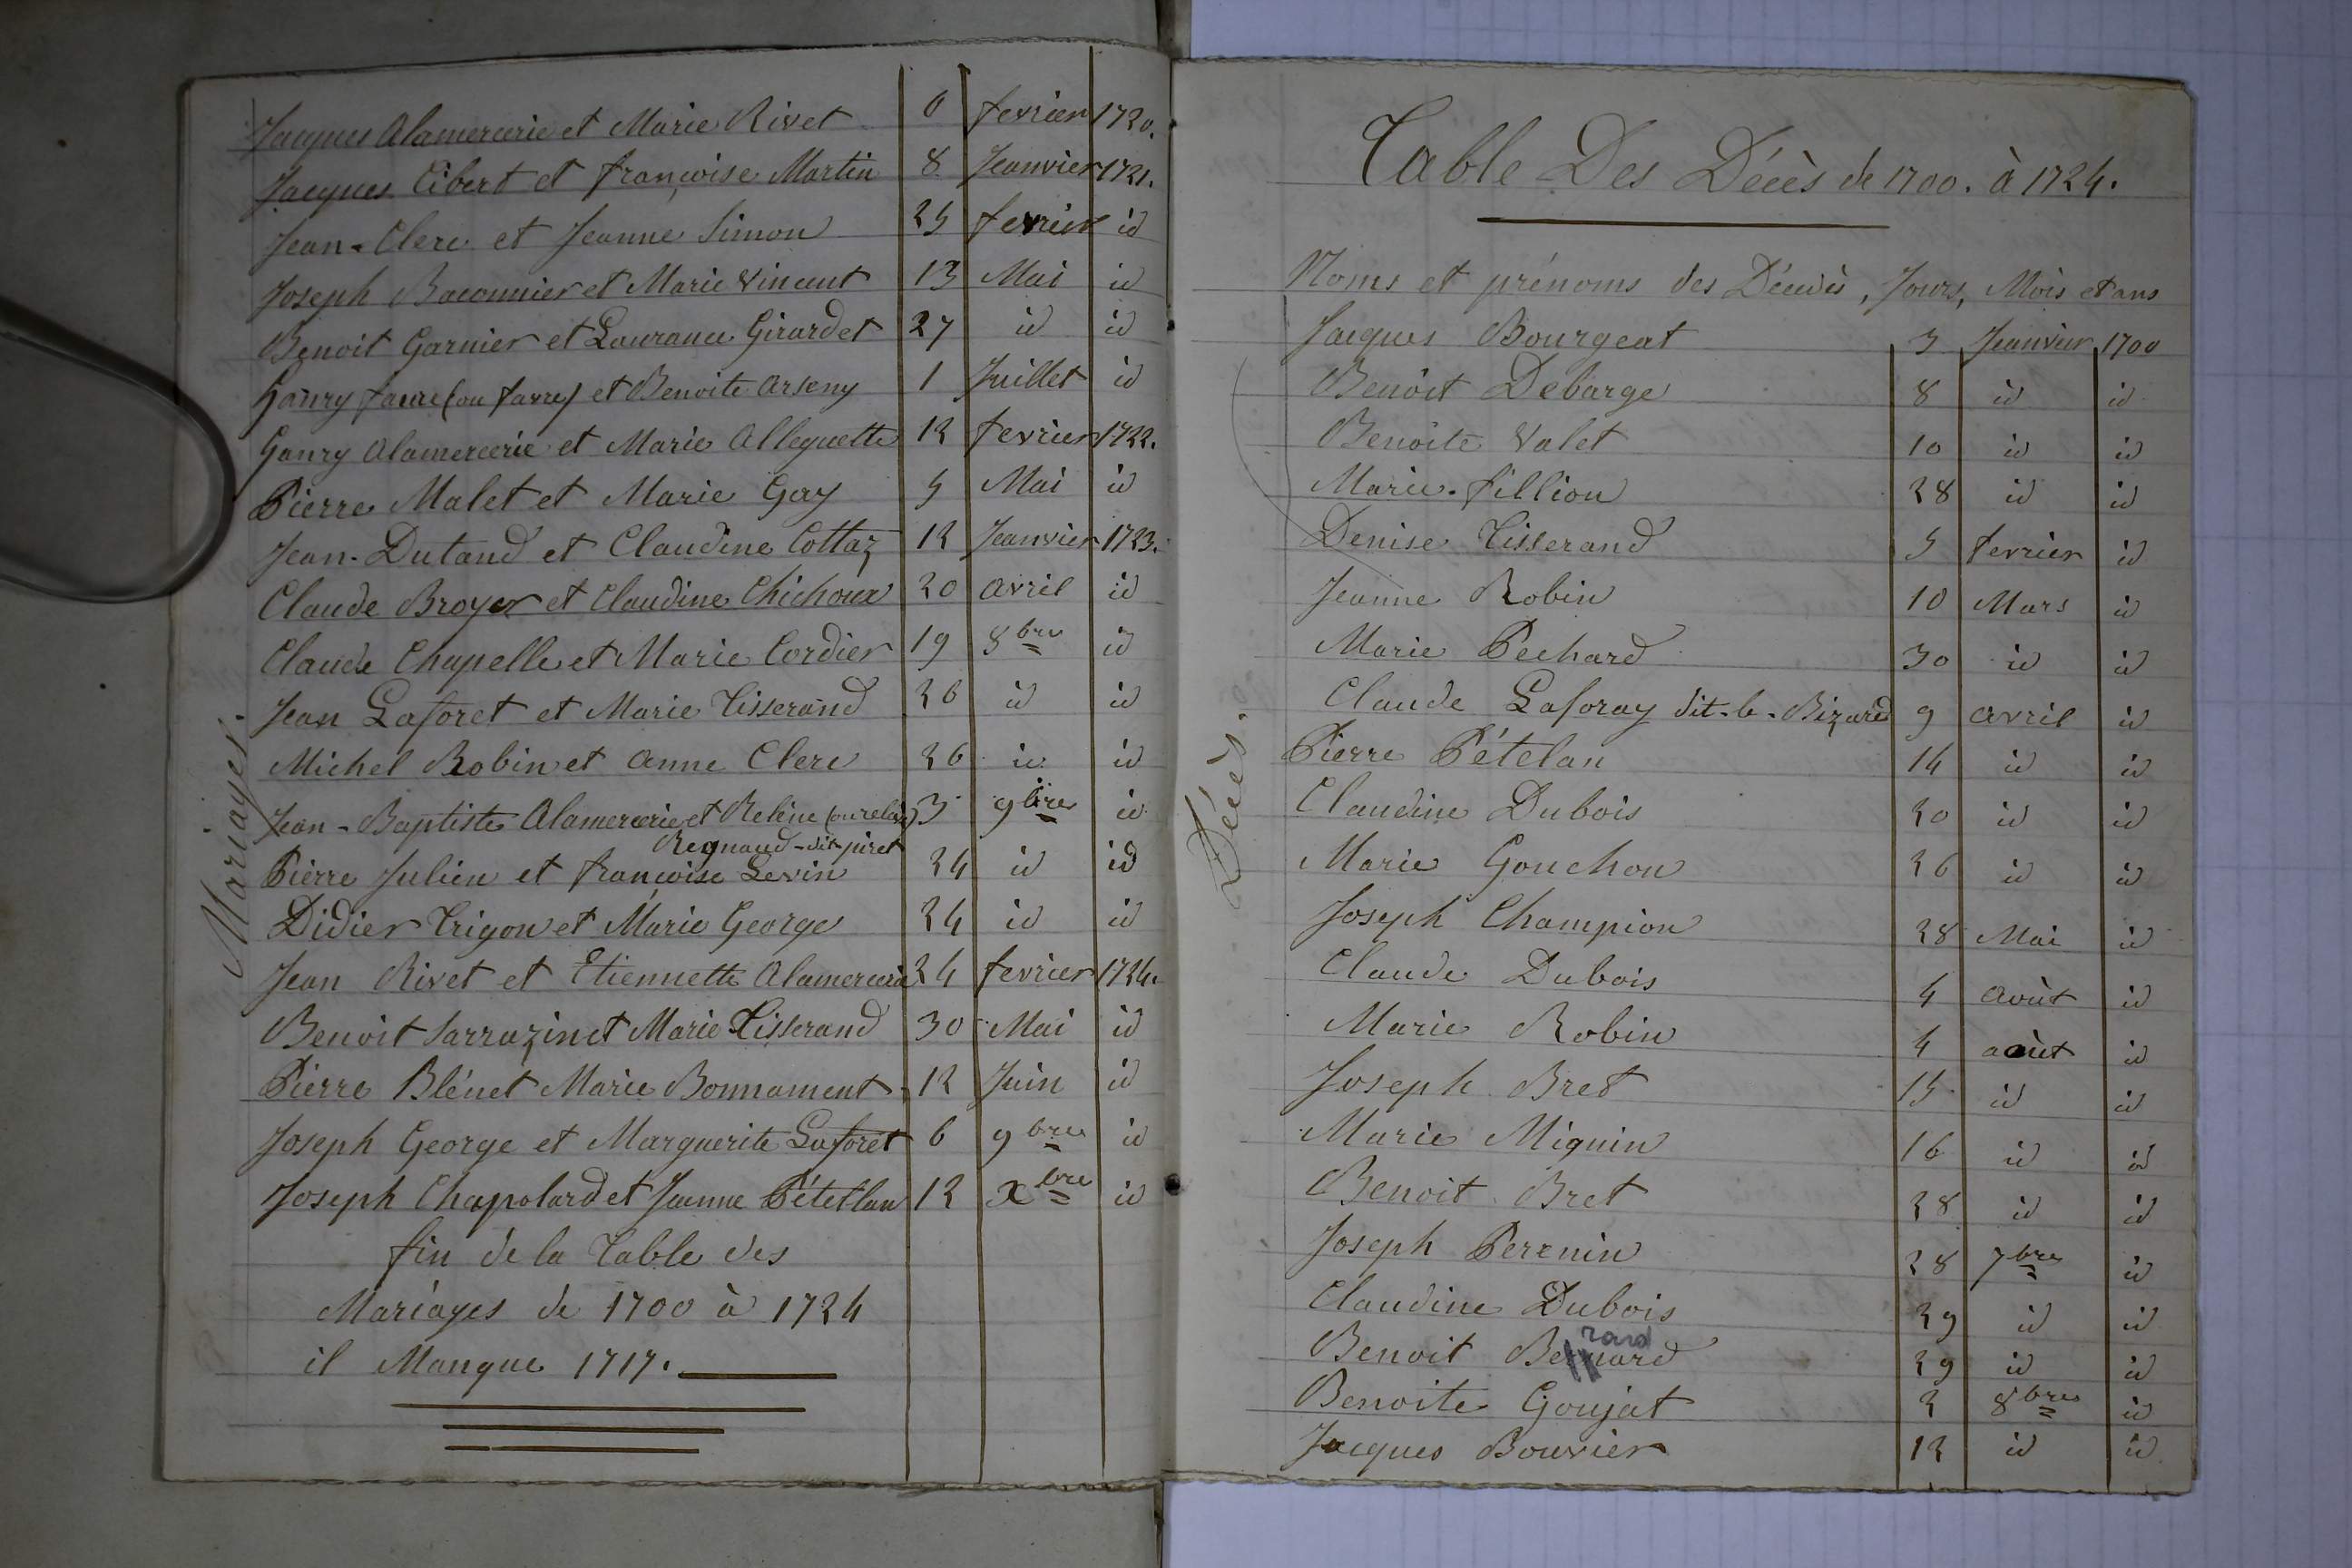 Mariages.
Jacques Alamercerie et Marie Rivet 6 fevrier 1720.
Jacques Cibert et françoise Martin 8 Jeanvier 1721.
Jean-Clerc et Jeanne Simon 25 fevrier id
Joseph Baconnier et Marie Vincent 13 Mai id
Benoit Garnier et Laurance Girardet 27 id id
Ganry faure (ou favre) et Benoite Arseny 1 Juillet id
Ganry Alamercerie et Marie Alleguette 12 fevrier 1722.
Pierre Malet et Marie Gay 5 Mai id
Jean-Dutand et Claudine Cottaz 12 Jeanvier 1723.
Claude Broyer et Claudine Chichoux 20 avril id
Claude Chapelle et Marie Cordier 19 8bre id
Jean Laforet et Marie Tisserand 26 id id
Michel Robin et Anne Clerc 26 id id
Jean-Baptiste Alamercerie et Reline 3 9bre id
Regnaud-dit-piret
Pierre Julien et françoise Levin 24 id id
Didier Trigon et Marie George 24 id id
Jean Rivet et Etiennette Alamercerie 24 fevrier 1724.
Benoit Sarrazin et Marie Tisserand 30 Mai id
Pierre Blénet Marie Bonnament 12 Juin id
Joseph George et Marguerite Laforet 6 9bre id
Joseph Chapolard et Jeanne Pétetlan 12 xbre id
fin de la Table des
Mariages de 1700 à 1724
il Manque 1717.
Décès.
Table Des Décès de 1700. à 1724.
Noms et prénoms des Décédés, Jours, Mois et ans
Jacques Bourgeat 3 Jeanvier 1700
Benôit Debarge 8 id id
Benoite Valet 10 id id
Marie-fillion 28 id id
Denise Tisserand 5 fevrier id
Jeanne Robin 10 Mars id
Marie Pechard 30 id id
Claude Laforay dit-le-Bizard 9 avril id
Pierre Pételan 14 id id
Claudine Dubois 20 id id
Marie Gouchon 26 id id
Joseph Champion 28 Mai id
Claude Dubois 4 août id
Marie Robin 4 août id
Joseph Bret 15 id id
Marie Miguin 16 id id
Benoit Bret 28 id id
Joseph Perrnin 28 7bre id
Claudine Dubois 29 id id
rard
Benoit Bernard 29 id id
Benoite Goujat 2 8bre id
Jacques Bouvier 12 id id